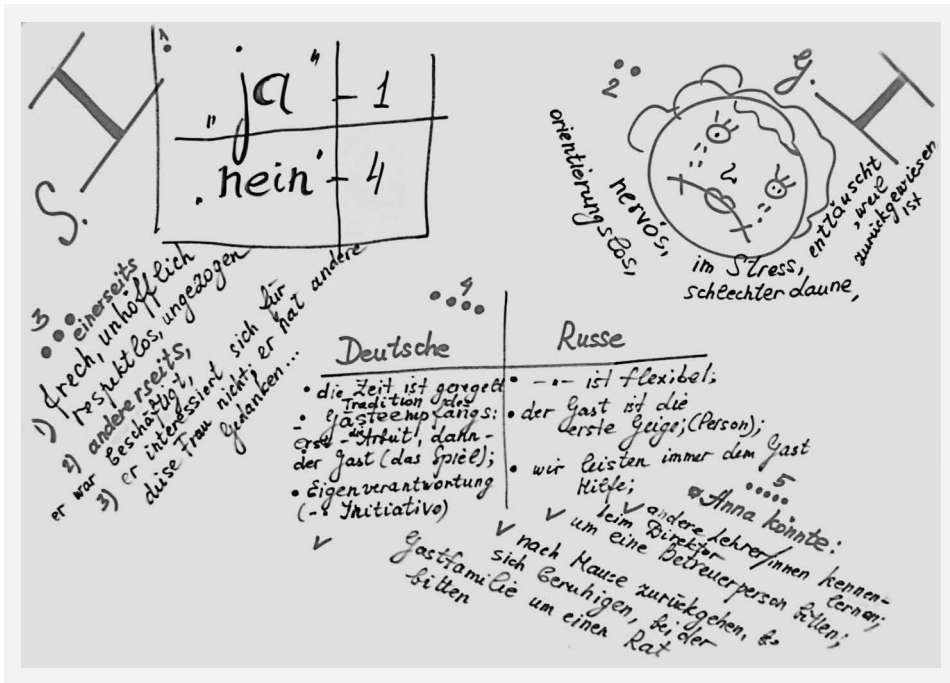 S.
1
"ja" - 1
"nein" - 4
2
G.
orientierungslos,
nervös,
im Stress,
schlechter Laune,
enttäuscht
, weil
zurückgewiesen
ist
3
einerseits
1) frech, unhöfflich
respektlos, ungezogen
2) andererseits,
er war beschäftigt,
3) er interessiert sich für
diese Frau nicht; er hat andere
Gedanken...
4
Deutsche
• die Zeit ist geregelt
• Tradition des
Gästeempfangs:
erst - die Arbeit, dann -
der Gast (das Spiel);
• Eigenverantwortung
(-. Initiativo)
Russe
• -"- ist flexibel;
• der Gast ist die
erste Geige; (Person);
• wir leisten immer dem Gast
Hilfe;
5
Anna könnte:
✓ andere Lehrer/innen kennen-
lernen;
✓ beim Direktor
um eine Betreuerperson bitten;
✓ nach Hause zurückgehen,
sich beruhigen, bei der
Gastfamilie um einen Rat
bitten
✓